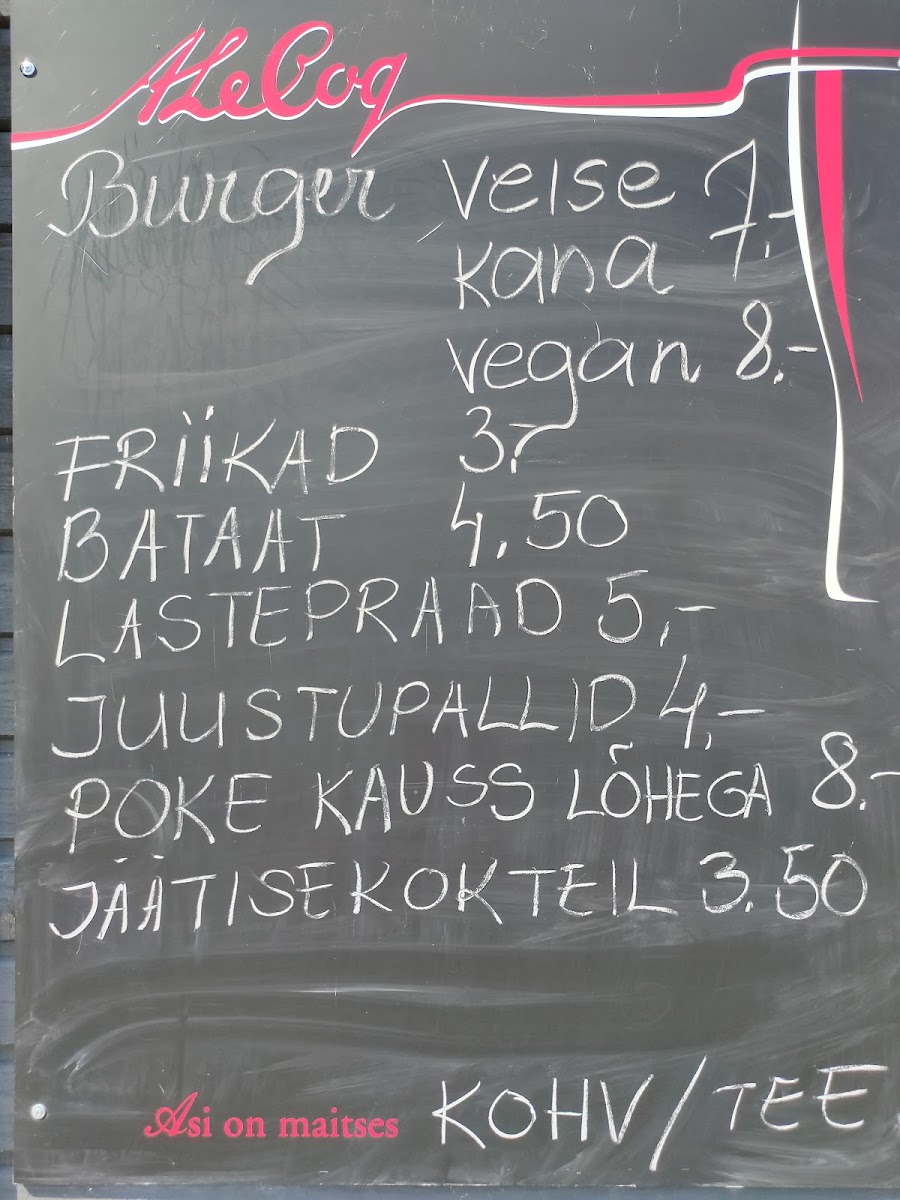 ALeCoq
Burger veise 7.-
kana
vegan 8.-
FRIIKAD 3.-
BATAAT 4.50
LASTEPRAAD 5,-
JUUSTUPALLID 4,-
POKE KAUSS LÕHEGA 8.-
JÄÄTISEKOKTEIL 3.50
Asi on maitses
KOHV/TEE